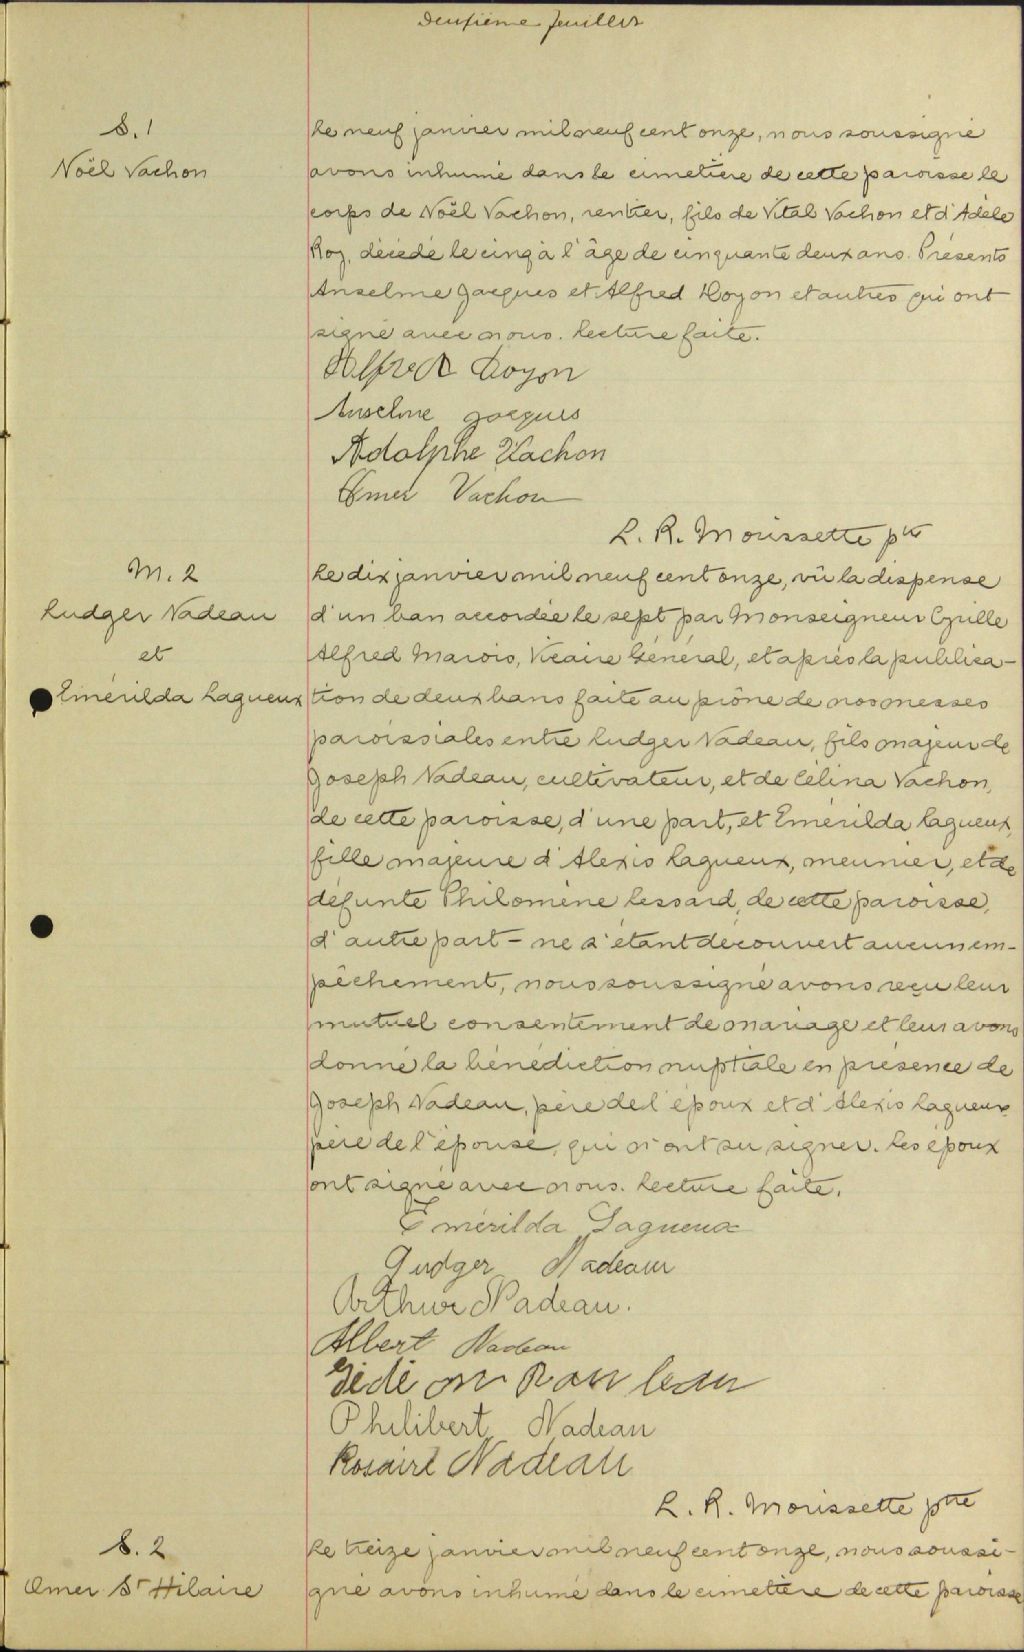 Deuxième feuillet
S. 1
Noël Vachon
Le neuf janvier mil neuf cent onze, nous soussigné
avons inhumé dans le cimetière de cette paroisse le
corps de Noël Vachon, rentier, fils de Vital Vachon et d'Adèle
Roy, décédé le cinq à l'âge de cinquante deux ans. Présents
Anselme Jacques et Alfred Doyon et autres qui ont
signé avec nous. Lecture faite.
Alfred Doyon
Anselme Jacques
Adolphe Vachon
Omer Vachon
L. R. Morissette ptre
M. 2
Ludger Nadeau
et
Emérilda Lagueux
Le dix janvier mil neuf cent onze, vû la dispense
d'un ban accordée le sept par Monseigneur Cyrille
Alfred Marois, Vicaire Général, et après la publica-
tion de deux bans faite au prône de nos messes
paroissiales entre Ludger Nadeau, fils majeur de
Joseph Nadeau, cultivateur, et de Célina Vachon,
de cette paroisse, d'une part, et Emérilda Lagueux,
fille majeure d'Alexis Lagueux, meunier, et de
défunte Philomène Lessard, de cette paroisse,
d'autre part – ne s'étant découvert aucun em-
pêchement, nous soussigné avons reçu leur
mutuel consentement de mariage et leur avons
donné la bénédiction nuptiale en présence de
Joseph Nadeau, père de l'époux et d'Alexis Lagueux
père de l'épouse, qui n'ont su signer. Les époux
ont signé avec nous. Lecture faite.
Emérilda Lagueux
Ludger Nadeau
Arthur Nadeau.
Albert Nadeau
Gédéon Rouleau
Philibert Nadeau
Rosaire Nadeau
L. R. Morissette ptre
S. 2
Omer St Hilaire
Le treize janvier mil neuf cent onze, nous soussi-
gné avons inhumé dans le cimetière de cette paroisse